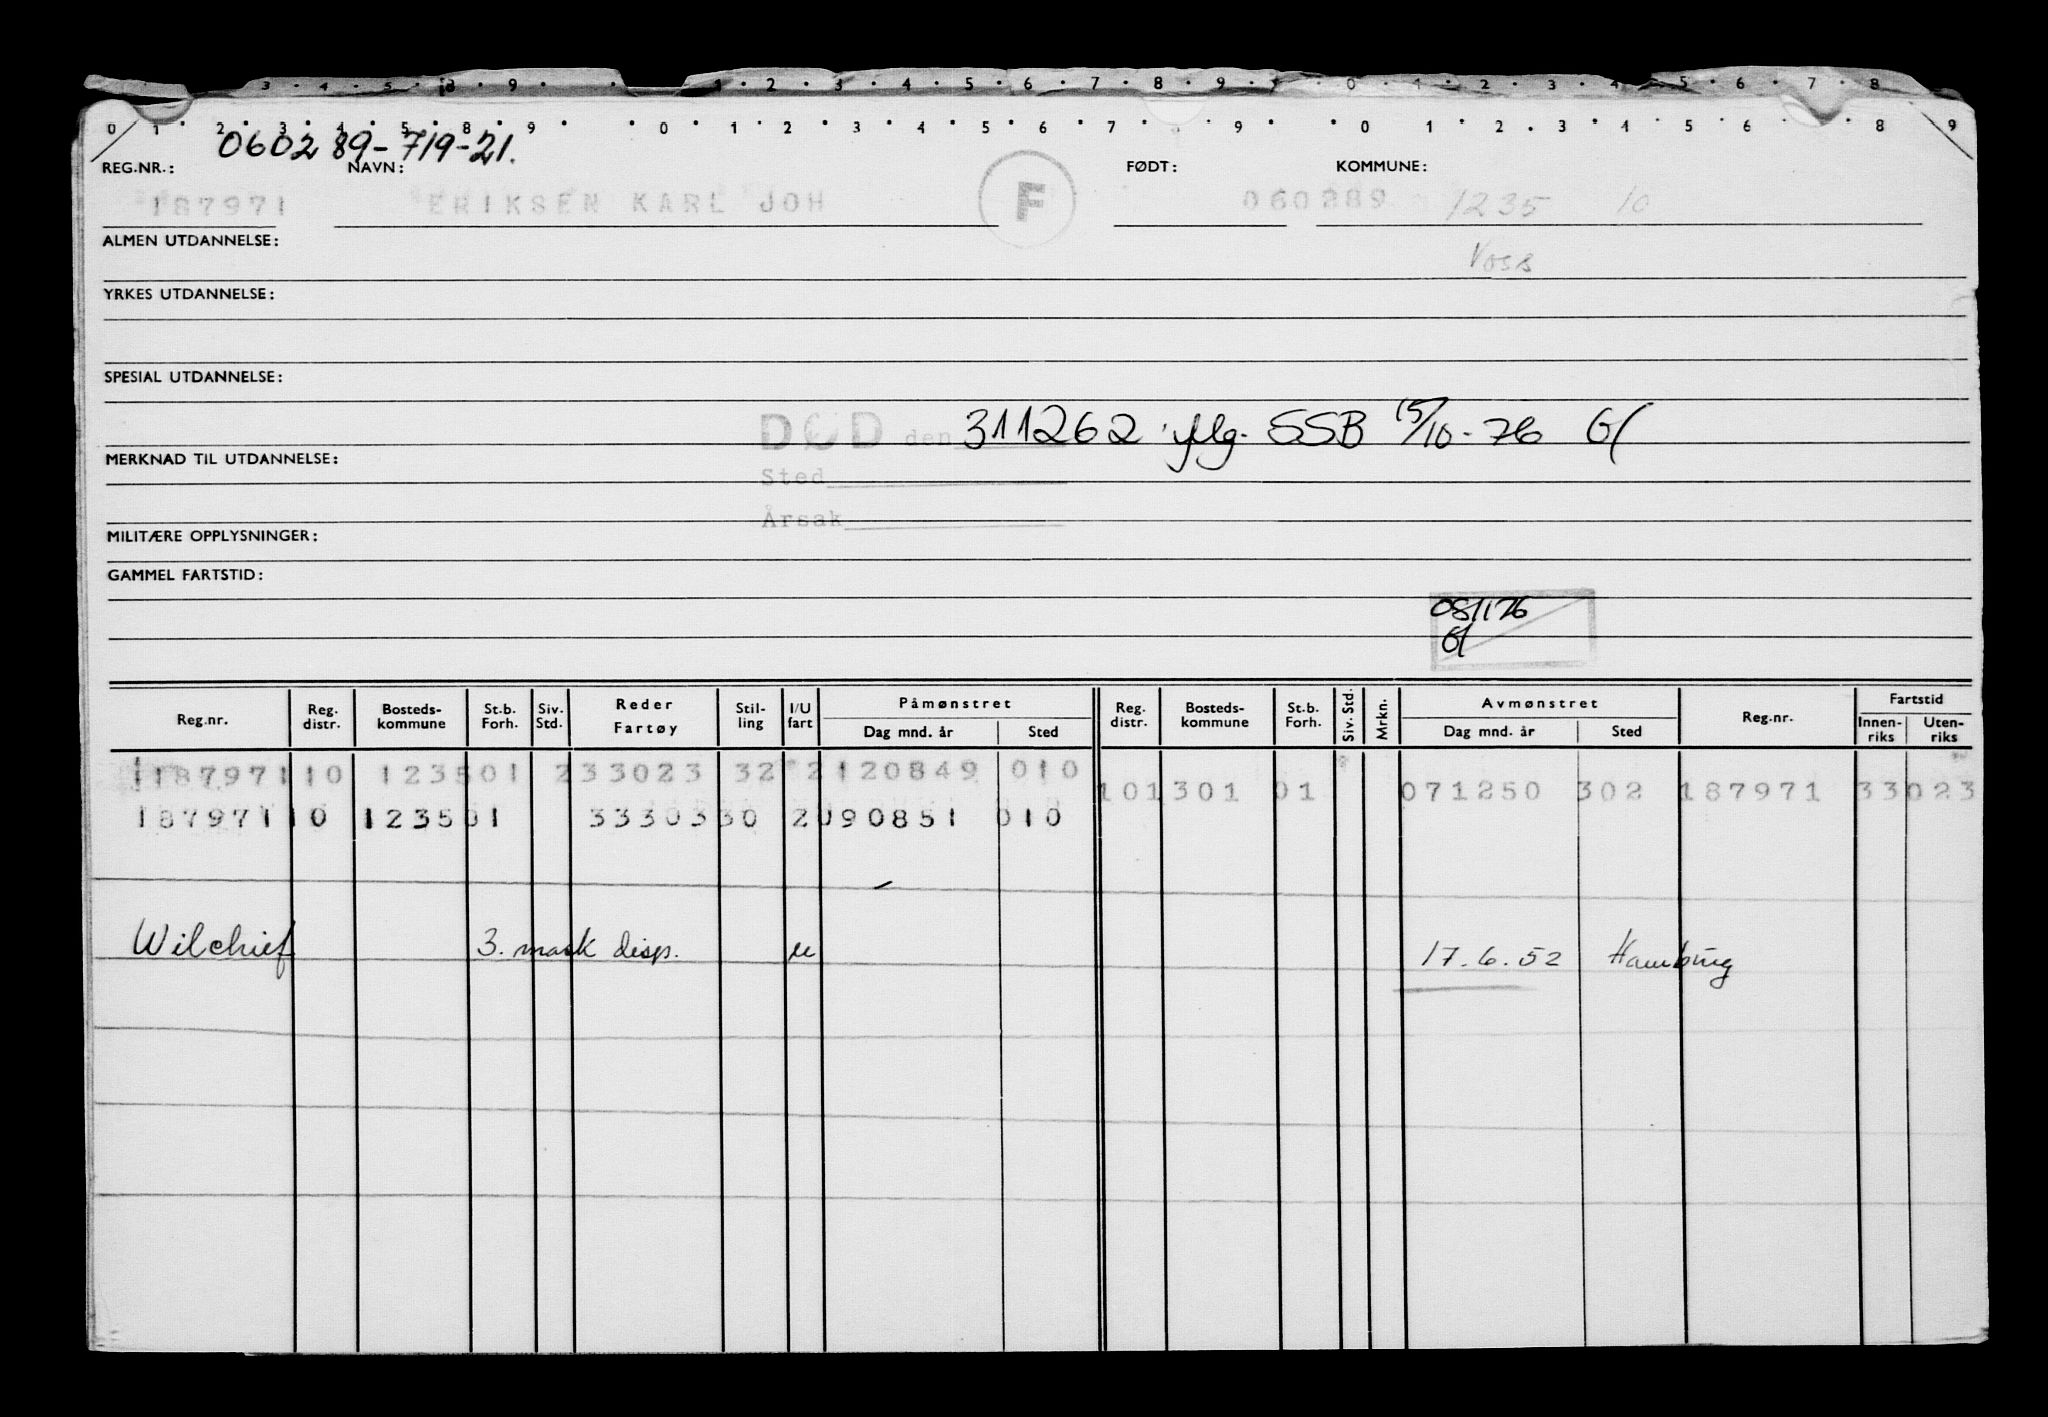 3 · 4 · 5 · 8 · 9 · 1 · 2 · 3 · 4 · 5 · 6 · 7 · 8 · 9 · 0 · 1 · 2 · 3 · 4 · 5 · 6 · 7 · 8
0 1 · 2 · 3 · 4 · 5 · 8 · 9 · · 0 · 1 · 2 · 3 · 4 · 5 · 6 · 7 · 9 · · 0 1 · 2 · 3 4 · 5 · 6 · 8 · 9
060289-719-21.
REG.NR.: NAVN: FØDT: KOMMUNE:
187971 ERIKSEN KARL JOH F 060289 1235 10
ALMEN UTDANNELSE: Voss
YRKES UTDANNELSE:
SPESIAL UTDANNELSE:
DØD den 311262 iflg. SSB 15/10-76
MERKNAD TIL UTDANNELSE:
Sted
Årsak
MILITÆRE OPPLYSNINGER:
GAMMEL FARTSTID:
081176
Reg.nr. Reg. distr. Bosteds-kommune St.b. Forh. Siv. Std. Reder Fartøy Stil-ling I/U fart Påmønstret Dag mnd. år Sted Reg. distr. Bosteds-kommune St.b. Forh. Siv. Std. Mrkn. Avmønstret Dag mnd. år Sted Reg.nr. Fartstid Innen-riks Uten-riks
187971 10 1235 01 2 33023 32 2 120849 010 10 1301 01 071250 302 187971 33023
187971 10 1235 01 33303 30 2 090851 010
Wilchief 3. mask disp. u 17.6.52 Hamburg